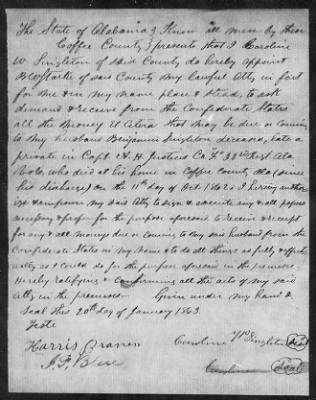 The State of Alabama } Know all men by these
Coffee County } presents that I Caroline
W Singleton of said County do hereby appoint
B W Starke of said County my lawful Atty in fact
for me & in my name place & stead, to ask
demand & receive from the Confederate States
all the Money &c that may be due or coming
to my husband Benjamin Singleton deceased, late a
private in Capt. A. H. Justices Co F 33rd Regt Ala
Vols, who died at his home in Coffee County Ala (since
his discharge) on the 11th day of Oct. 1862 & I hereby author
ize & empower my said Atty to sign & execute any & all papers
necessary & proper for the purpose aforesaid to receive & receipt
for any & all moneys due or coming to my said husband from the
Confederate States in my name & to do all things as fully & effect
ually as I could do for the purpose aforesaid in the premises
Hereby ratifying & confirming all the acts of my said
Atty in the premises. Given under my hand &
Seal this 20th day of January 1863.
Teste
Caroline W Singleton Seal
Harris
J. F.
Caroline Seal